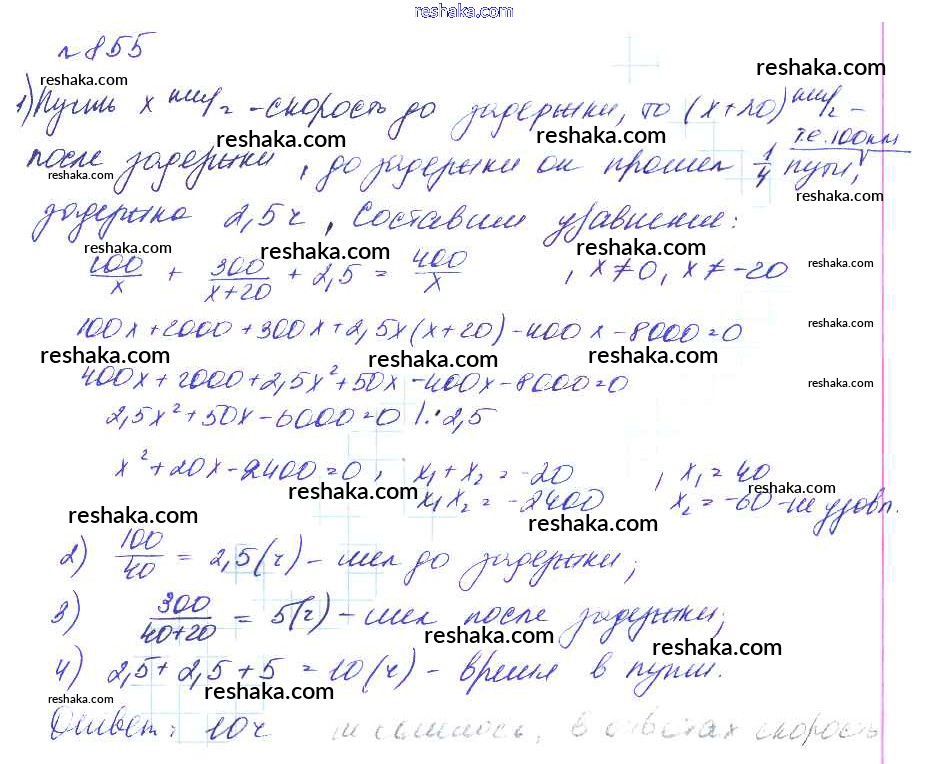 reshaka.com
№855
reshaka.com reshaka.com
1) Пусть x км/ч - скорость до задержки, то (x+20) км/ч -
reshaka.com reshaka.com т.е. 100км
после задержки, до задержки он прошел 1/4 пути,
reshaka.com reshaka.com
задержка 2,5ч, Составим уравнение:
reshaka.com reshaka.com
100/x + 300/(x+20) + 2,5 = 400/x , x≠0, x≠-20 reshaka.com
100x+2000+300x+2,5x(x+20)-400x-8000=0 reshaka.com
reshaka.com reshaka.com reshaka.com
400x+2000+2,5x²+50x-400x-8000=0 reshaka.com
2,5x²+50x-6000=0 |:2,5
x²+20x-2400=0; x₁+x₂=-20 , x₁=40
reshaka.com reshaka.com
x₁x₂=-2400 x₂=-60-не удовл.
reshaka.com reshaka.com
2) 100/40 = 2,5(ч) - шел до задержки;
reshaka.com reshaka.com
3) 300/(40+20) = 5(ч) - шел после задержки;
reshaka.com reshaka.com
4) 2,5+2,5+5=10(ч) - время в пути.
reshaka.com reshaka.com reshaka.com
Ответ: 10ч в ответах скорость